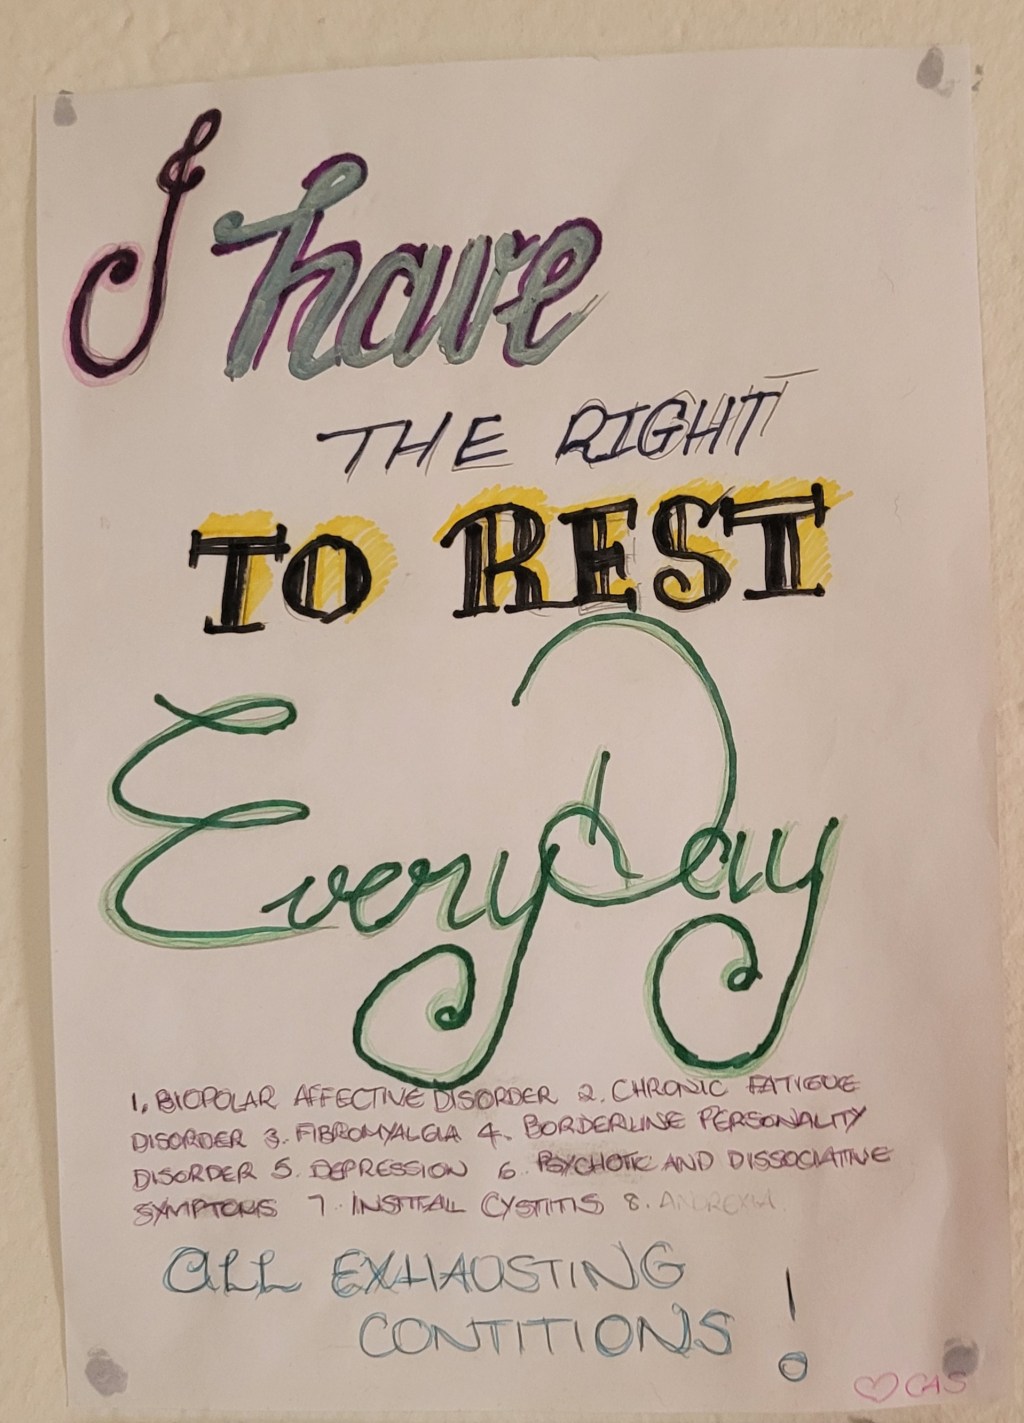 I have
THE RIGHT
TO REST
Every Day
1. BIOPOLAR AFFECTIVE DISORDER 2. CHRONIC FATIGUE
DISORDER 3. FIBROMYALGIA 4. BORDERLINE PERSONALITY
DISORDER 5. DEPRESSION 6. PSYCHOTIC AND DISSOCIATIVE
SYMPTOMS 7. CYSTITIS 8. ANOREXIA
ALL EXHAUSTING
CONTITIONS !
♡ CAS